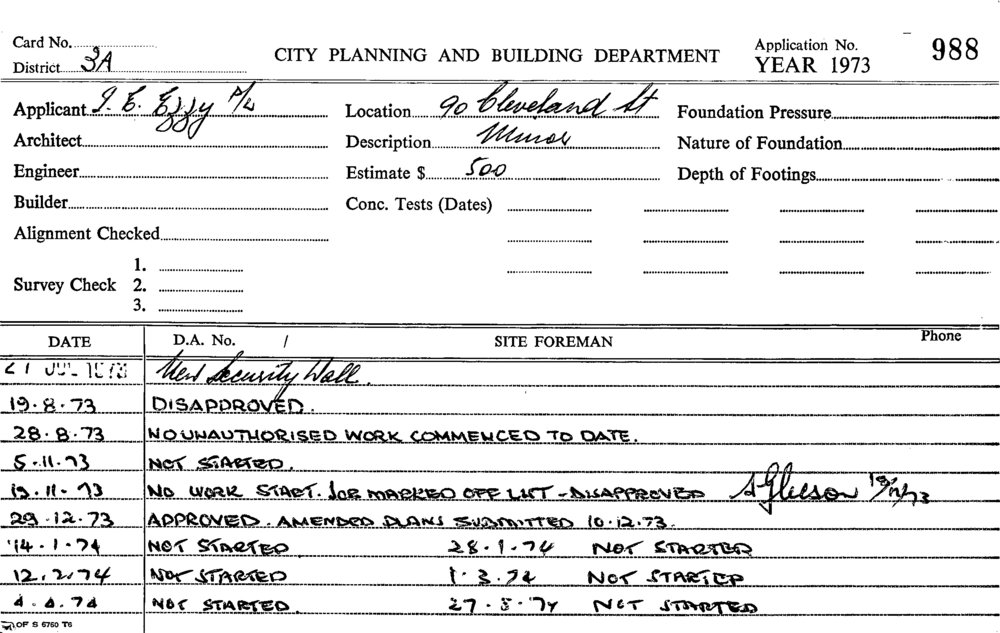 Card No. CITY PLANNING AND BUILDING DEPARTMENT Application No. 988
District 3A YEAR 1973
Applicant J. E. Ezzy P/L Location 90 Cleveland St Foundation Pressure
Architect Description Minor Nature of Foundation
Engineer Estimate $ 500 Depth of Footings
Builder Conc. Tests (Dates)
Alignment Checked
1.
Survey Check 2.
3.
DATE D.A. No. / SITE FOREMAN Phone
JUL 1973 New Security Wall.
19.8.73 DISAPPROVED.
28.8.73 NO UNAUTHORISED WORK COMMENCED TO DATE.
5.11.73 NOT STARTED.
19.11.73 NO WORK START. JOB MARKED OFF LIST - DISAPPROVED A Gleeson 19/11/73
29.12.73 APPROVED. AMENDED PLANS SUBMITTED 10.12.73.
14.1.74 NOT STARTED 28.1.74 NOT STARTED
12.2.74 NOT STARTED 1.3.74 NOT STARTED
4.4.74 NOT STARTED. 27.5.74 NOT STARTED
OF S 6760 T6